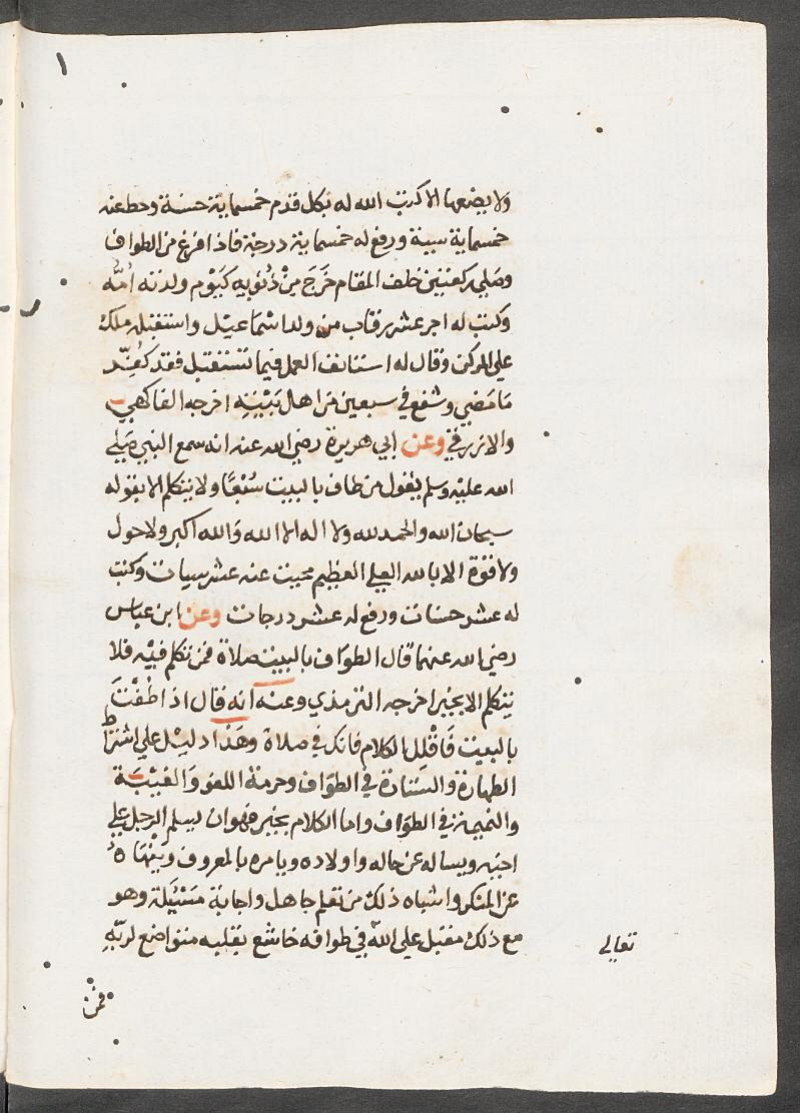 ١
ولا يضعها الا كتب الله له بكل قدم خمسماية حسنة وحط عنه
خمسماية سيية ورفع له خمسماية درجة فاذا فرغ من الطواف
وصلى ركعتين خلف المقام خَرَجَ مِنْ ذُنوبه كَيَوْم ولدته اُمُّه
وكتب له اجر عشر رقاب من ولد اسْمَاعيل واستقبله ملك
على الركن وقال له استانف العمل فيما تستقبل فقد كُفِيْتَ
مَا مَضي وشفع في سبعين من اهل بَيْتِهِ اخرجه الفاكهي
والازرقي وعن ابي هريرة رضي الله عنه انه سمع النبي صَلى
الله عليْه وسلم يقول من طاف بالبيت سُبْعًا ولا يتكلم الا بقوله
سبحان الله والحمد لله ولا اله الا الله وَالله اكبر ولا حول
ولا قوّة الا بالله العلي العظيم محيت عنه عشر سيات وكتب
له عشر حسَنات ورفع له عشر درجات وعن ابن عباس
رضي الله عنهما قال الطوَاف بالبيت صلاة فمن تكلم فيْه فلا
يتكلم الا بخير اخرجه الترمذي وعنه انه قال اذا طُفْتَ
بالبيت فَاقْلِل الكلام فانك في صلاة وهَذا دليْل على اشتراط
الطهارة والستارة في الطوَاف وحرمة اللغو وَالغيْبَة
والنميمة في الطوَاف واما الكلام بخير فهو ان يسلم الرجل على
اخيه ويساله عن حاله واولاده ويامره بالمعروف ويَنْهَاهُ
عن المنكر واشباه ذلك من تعلم جاهل واجابة مَسْئَلة وهو
مع ذلك مقبل على الله في طوافه خاشع بقلبه متواضع لربّه
تعالى
فمن